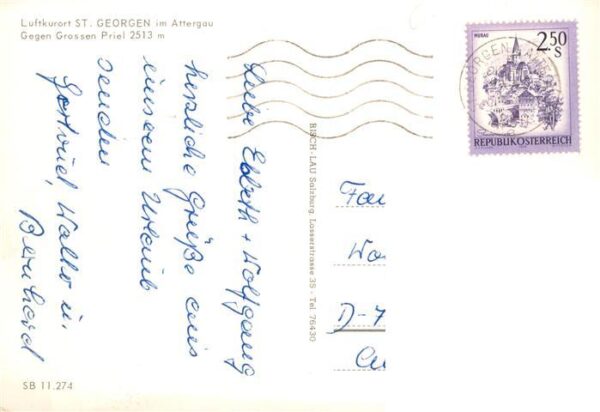 Luftkurort ST. GEORGEN im Attergau
Gegen Grossen Priel 2513 m
Liebe Elsbeth + Wolfgang
herzliche Grüße aus
unserem Urlaub
senden
Gertrud, Walter u.
Bernhard
RISCH-LAU Salzburg, Lasserstrasse 35 - Tel 76430
SB 11.274
MURAU
2.50
S
REPUBLIK ÖSTERREICH
Fam
D-7